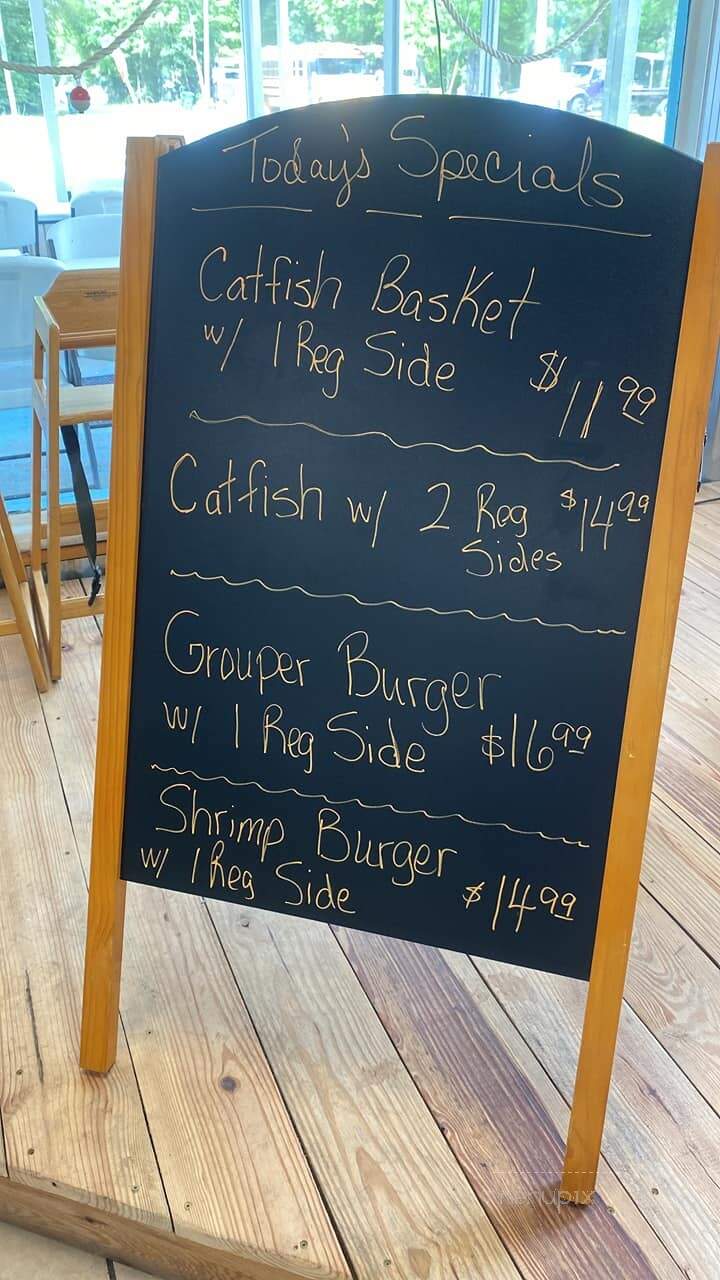 Today's Specials
Catfish Basket
w/ 1 Reg Side $11.99
Catfish w/ 2 Reg $14.99
Sides
Grouper Burger
w/ 1 Reg Side $16.99
Shrimp Burger
w/ 1 Reg Side $14.99
menupix